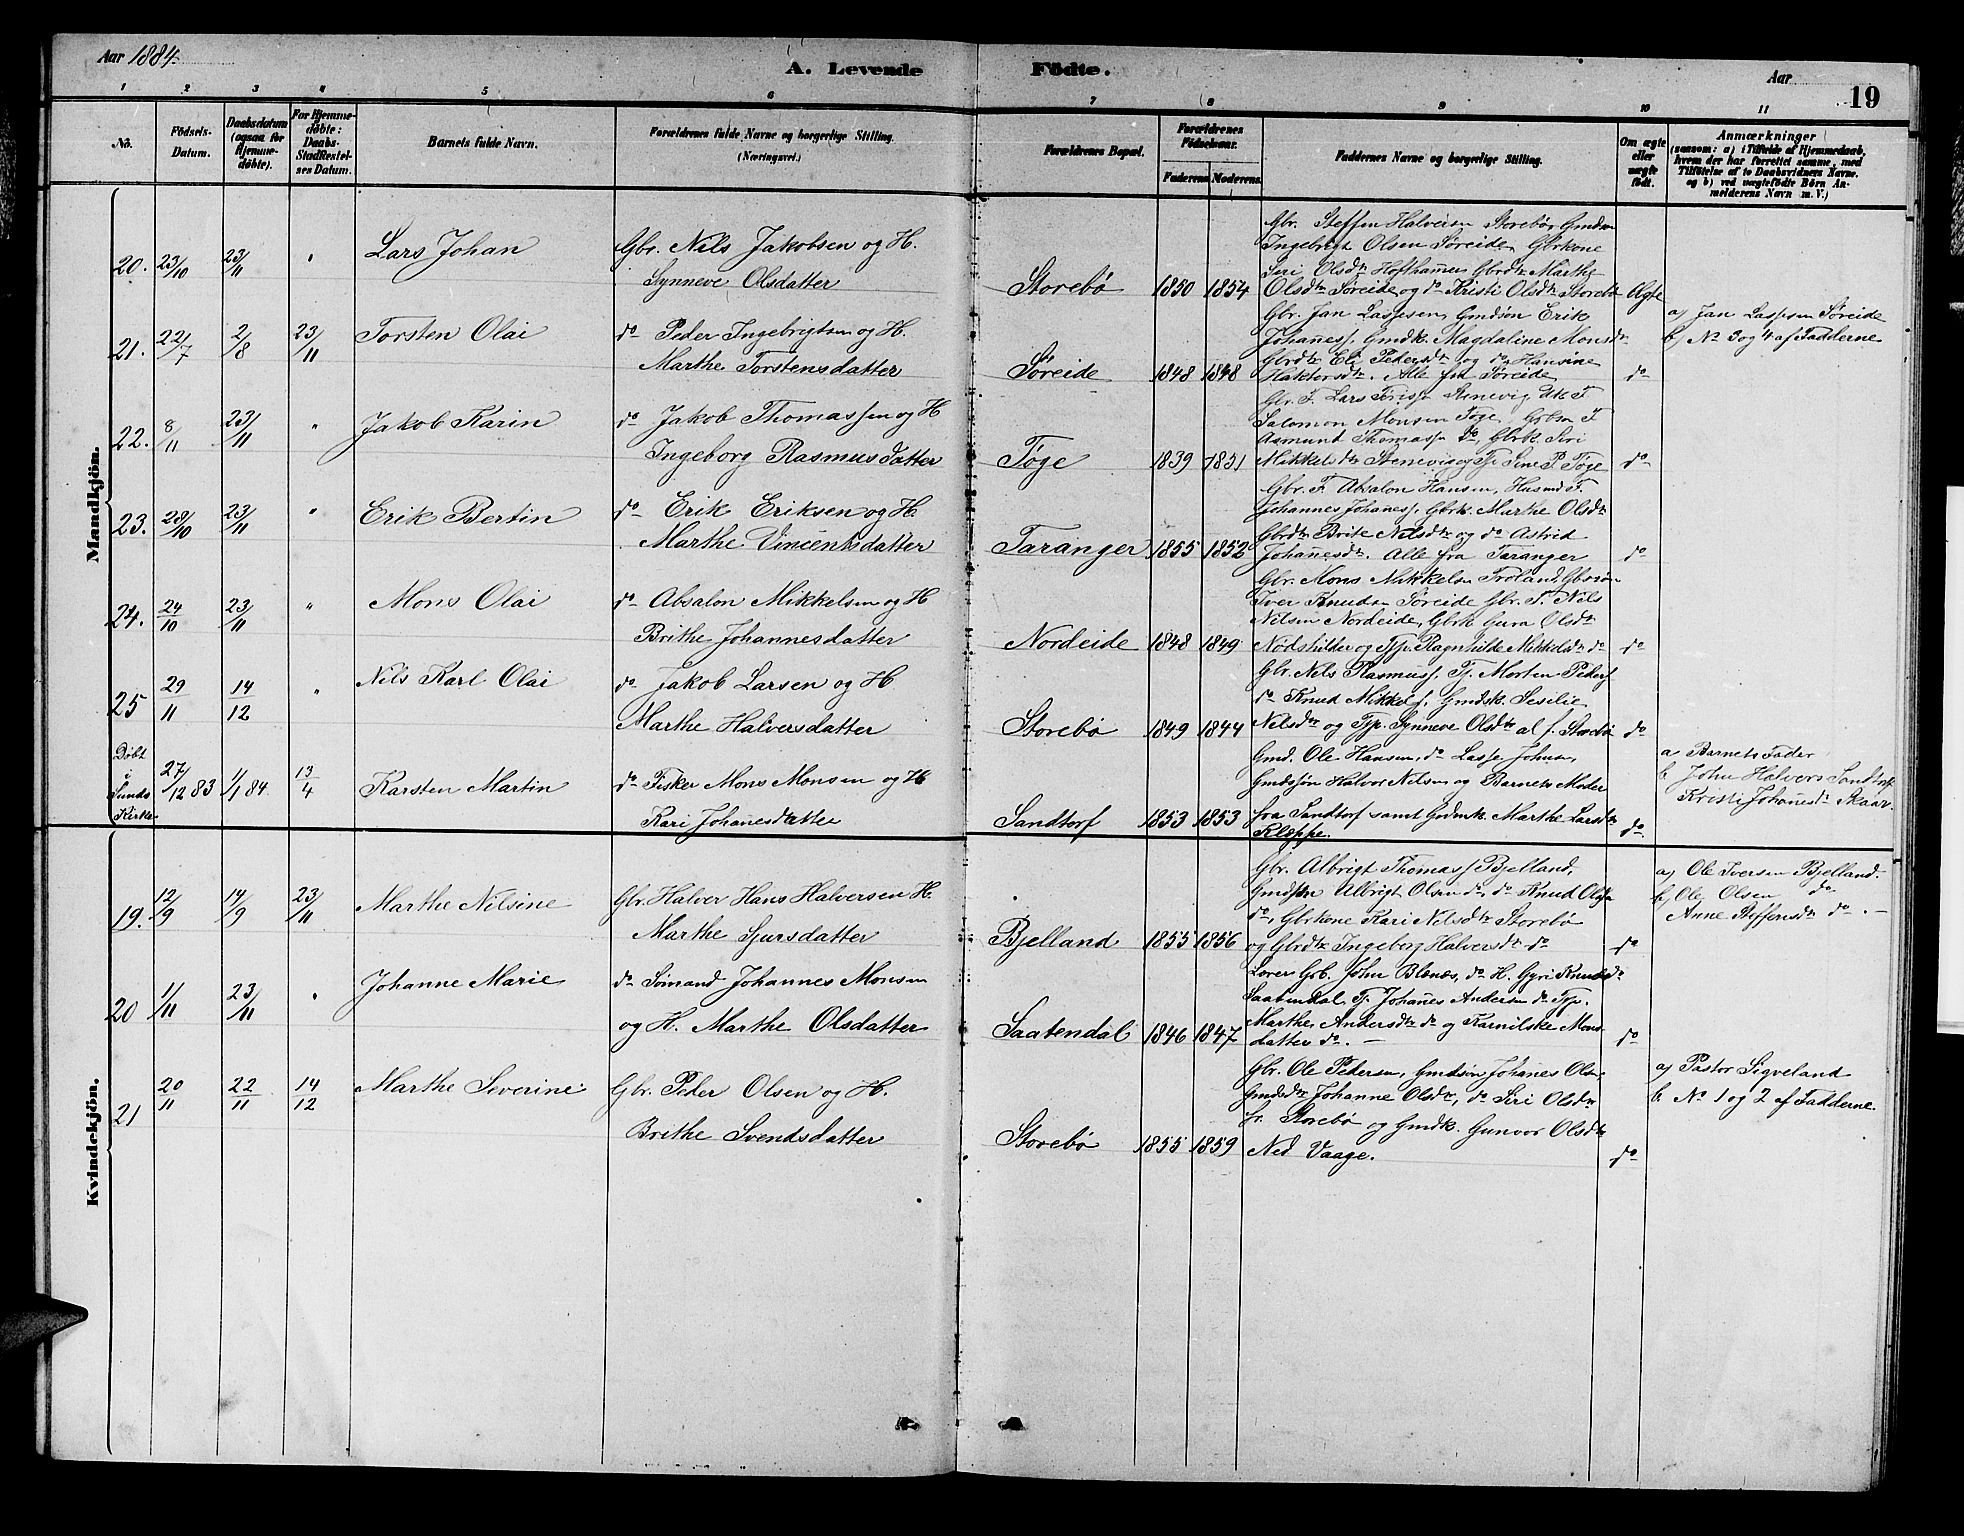 Aar 1884.
A. Levende Födte.
Aar
19
1 2 3 4 5 6 7 8 9 10 11
No.
Födsels-Datum.
Daabsdatum (ogsaa for Hjemmedöbte).
For Hjemmedöbte: Daabs-Stadfæstelses Datum.
Barnets fulde Navn.
Forældrenes fulde Navne og borgerlige Stilling.
(Næringsvei.)
Forældrenes Bopæl.
Forældrenes Födselsaar.
Faderens. Moderens.
Faddernes Navne og borgerlige Stilling.
Om ægte eller uægte födt.
Anmærkninger
(saasom: a) i Tilfælde af Hjemmedaab, hvem der har forrettet samme, med Tilföielse af to Daabsvidners Navne. og b) ved uægtefödte Börn Anmelderens Navn m. V.)
Mandkjön.
20. 23/10 23/11 " Lars Johan
Gbr. Nils Jakobsen og H.
Synneve Olsdatter
Storebø 1850 1854
Gbr. Steffen Halversen Storebø, Gmdsn
Ingebrigt Olsen Søreide, Gbrkone
Siri Olsdtr Hofthamer Gbrdtr Marthe
Olsdtr Søreide og do Kristi Olsdtr Storebø
Ægte
21. 22/7 2/8 23/11 Torsten Olai
do Peder Ingebrigtsen og H.
Marthe Torstensdatter
Søreide 1848 1848
Gbr. Jan Lassesen, Gmdsøn Erik
Johaness. Gmdk. Magdaline Monsdtr
Gbrdtr Eli Pedersdtr og do Hansine
Haktorsdtr. Alle fra Søreide
do
a) Jan Lassesen Søreide
b) No 3 og 4 af Fadderne
22. 8/11 23/11 " Jakob Karin
do Jakob Thomassen og H
Ingeborg Rasmusdatter
Tøge 1839 1851
Gbr. F. Lars Stenevig F
Salomon Monsen Tøge, Gbsn F
Asmund Thomass do, Gbrk. Siri
Mikkelsdtr Stenevig og Tj. Sine P. Tøge
do
23. 28/10 23/11 " Erik Bertin
do Erik Eriksen og H.
Marthe Vincentsdatter
Taranger 1855 1852
Gbr. F. Absalon Hansen, Husmd F.
Johannes Johaness. Gbrk. Marthe Olsdtr
Gbrdtr Brite Nilsdtr og do Astrid
Johanesdtr. Alle fra Taranger
do
24. 24/10 23/11 " Mons Olai
do Absalon Mikkelsen og H
Brithe Johannesdatter
Nordeide 1848 1849
Gbr. Mons Mikkelsn Troland, Gbrsøn
Iver Knudsn Søreide Gbr. F. Nils
Nilsen Nordeide, Gbrk Gura Olsdtr
Nødshilder og Tjp. Ragnhilde Mikkelsdtr do
do
25 29/11 14/12 " Nils Karl Olai
do Jakob Larsen og H
Marthe Halversdatter
Storebø 1849 1844
Gbr. Nils Rasmuss. Tj. Morten Peders
do Knud Mikkels. Gmdsk. Sesilie
Nilsdtr og Tjp. Synneve Olsdtr al f. Storebø
do
Døbt i Sunds Kirke
27/12 83 1/1 84. 13/4 Karsten Martin
do Fisker Mons Monsen og H
Kari Johanesdatter
Sandtorf 1853 1853
Gmd. Ole Hansen, do Lasse Johnsn,
Gmdssøn Halvor Nilsen og Barnets Moder
fra Sandtorf samt Gmdsk. Marthe Larsdtr
Kleppe.
do
a Barnets Fader
b. John Halvers Sandtorf
Kristi Johanesdtr Skaar
Kvindekjön.
19. 12/9 14/9 23/11 Marthe Nilsine
Gbr. Halver Hans Halversen H.
Marthe Sjursdatter
Bjelland 1855 1856
Gbr. Albrigt Thomass. Bjelland,
Gmdssøn Albrigt Olsen do, do Knud Olsen
do, Gbrkone Kari Nilsdtr Storebø
og Gbrdtr Ingeborg Halversdtr do
do
a) Ole Iversen Bjelland.
b) Ole Olsen do
Anne Steffensdtr do. —
20 1/11 23/11 " Johanne Marie
do Sømand Johannes Monsen
og H. Marthe Olsdatter
Saatendal 1846 1847
Lærer Gbr. John Blenes, do H. Gyri Knudsdtr
Saatendal Tj. Johanes Andersen do Tjp.
Marthe Andersdtr do og Karnilske Mons
datter do. —
do
21 20/11 22/11 14/12 Marthe Severine
Gbr. Peder Olsen og H.
Brithe Svendsdatter
Storebø 1855 1859
Gbr. Ole Pedersen, Gmdsøn Johanes Olsn,
Gmdsdtr Johanne Olsdtr, do Siri Olsdtr
fr. Storebø og Gmdk. Gunvor Olsdtr
Ned Vaage.
do
a) Pastor Sigveland
b. No 1 og 2 af Fadderne.